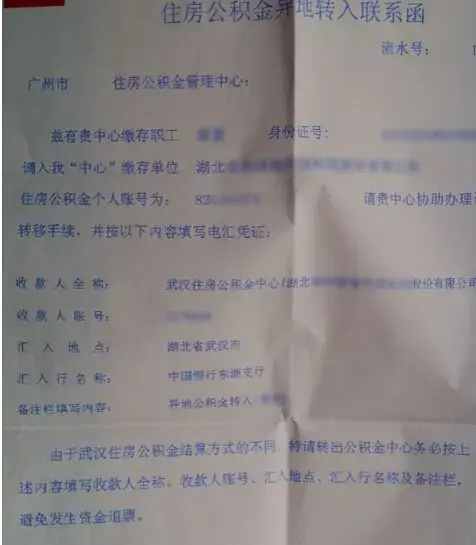 住房公积金异地转入联系函
流水号：
广州市 住房公积金管理中心：
兹有贵中心缴存职工 身份证号：
调入我“中心”缴存单位 湖北
住房公积金个人账号为： 82 请贵中心协助办理
转移手续，并按以下内容填写电汇凭证：
收款人全称： 武汉住房公积金中心(湖北 股份有限公司
收款人账号：
汇入地点： 湖北省武汉市
汇入行名称： 中国银行东湖支行
备注栏填写内容： 异地公积金转入
由于武汉住房公积金结算方式的不同，特请转出公积金中心务必按上
述内容填写收款人全称、收款人账号、汇入地点、汇入行名称及备注栏，
避免发生资金退票。